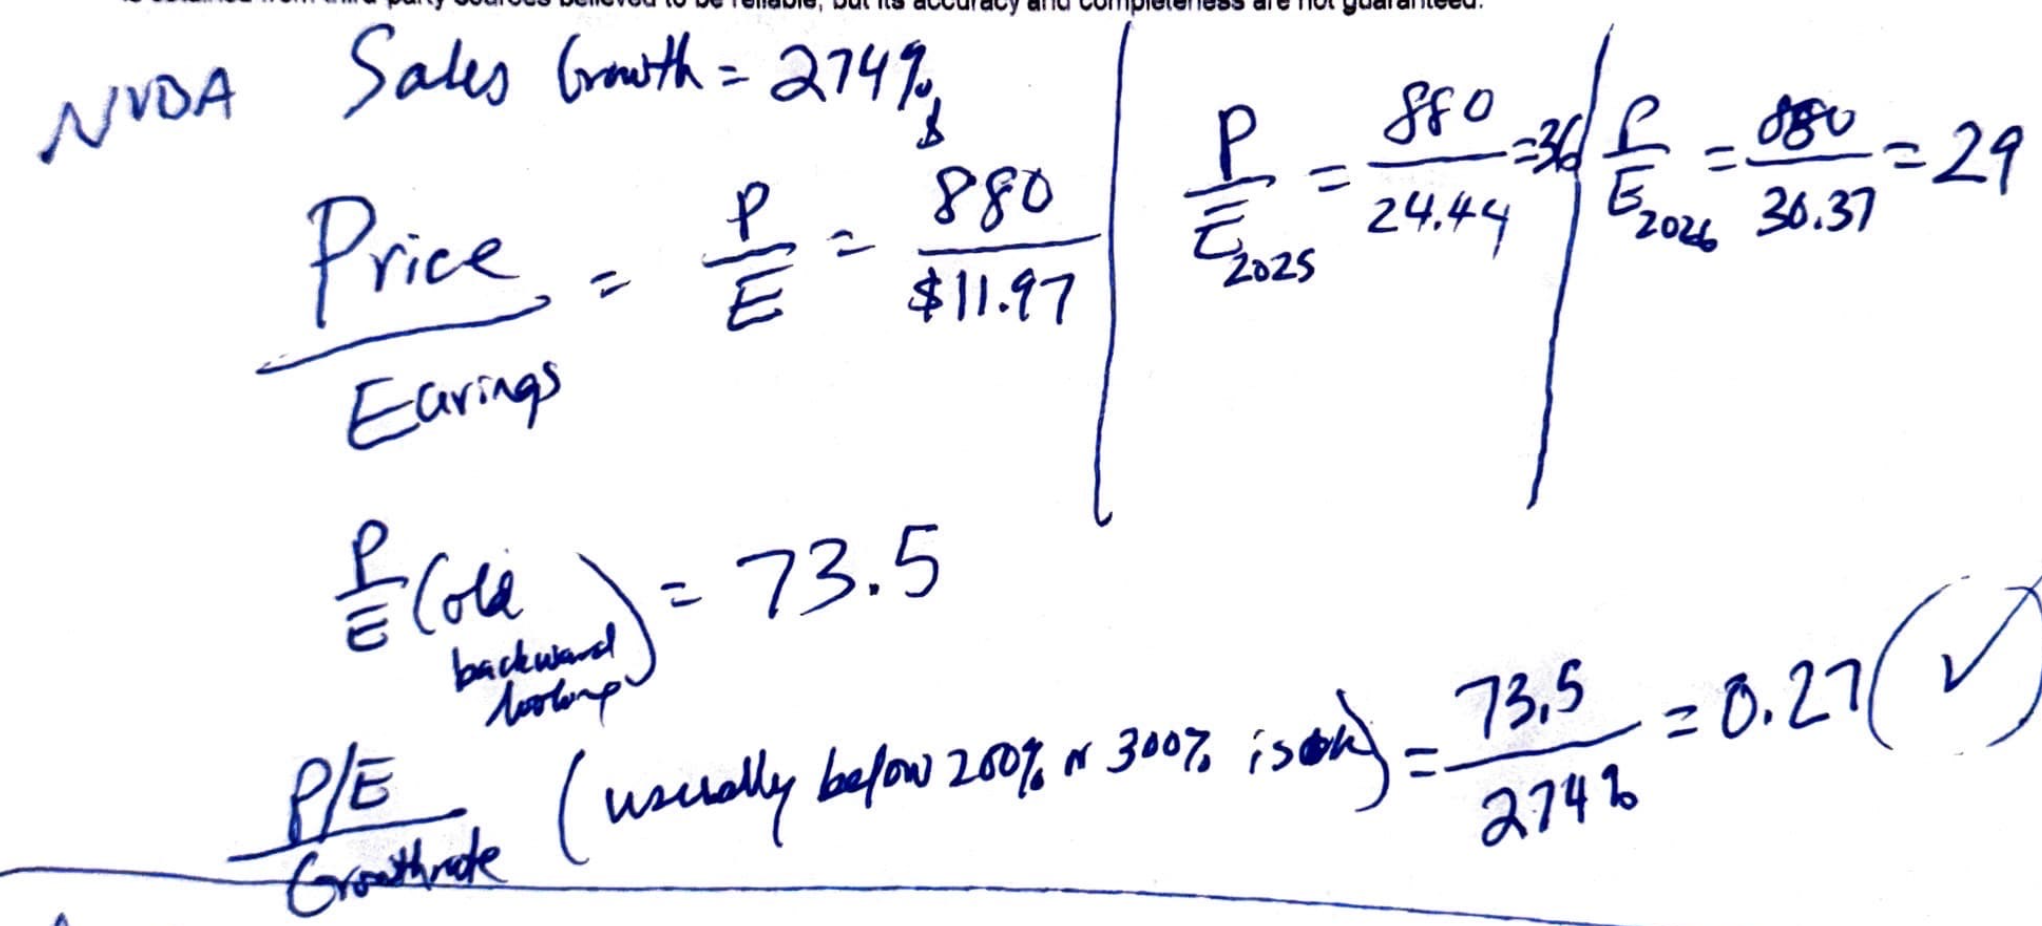 is obtained from third-party sources believed to be reliable, but its accuracy and completeness are not guaranteed.
NVDA Sales Growth = 274%
Price / Earings = P / E = $ 880 / $11.97
P / E 2025 = 880 / 24.44 = 36
P / E 2026 = 880 / 30.37 = 29
P / E (old backward looking) = 73.5
P/E / Growth rate (usually below 200% or 300% is ok) = 73.5 / 274% = 0.27 (✓)